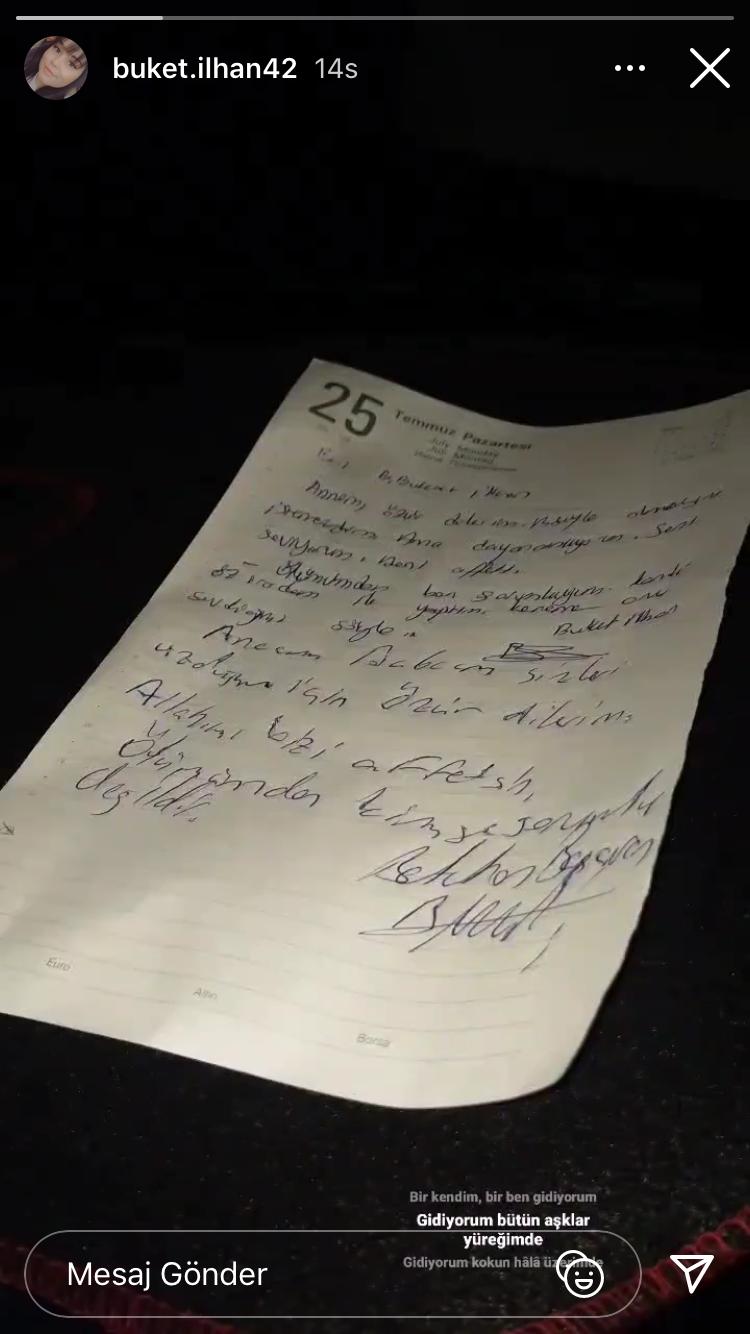 buket.ilhan42 14s
25 Temmuz Pazartesi
July Monday
Juli Montag
Annem, özür dilerim. Böyle olmasını
istemezdim Ama dayanamıyorum. Seni
seviyorum. Beni affet.
Ölümümden ben sorumluyum kendi
öz iradem ile yaptım.
sevdiğimi söyle.
Buket ilhan
Anecam Babcam sizleri
üzdüğüm için özür dilerim.
Allahım bizi affetsin,
Ölümümden kimse sorumlu
değildir.
Euro
Altın
Borsa
Bir kendim, bir ben gidiyorum
Gidiyorum bütün aşklar
yüreğimde
Gidiyorum kokun hâlâ üzerimde
Mesaj Gönder